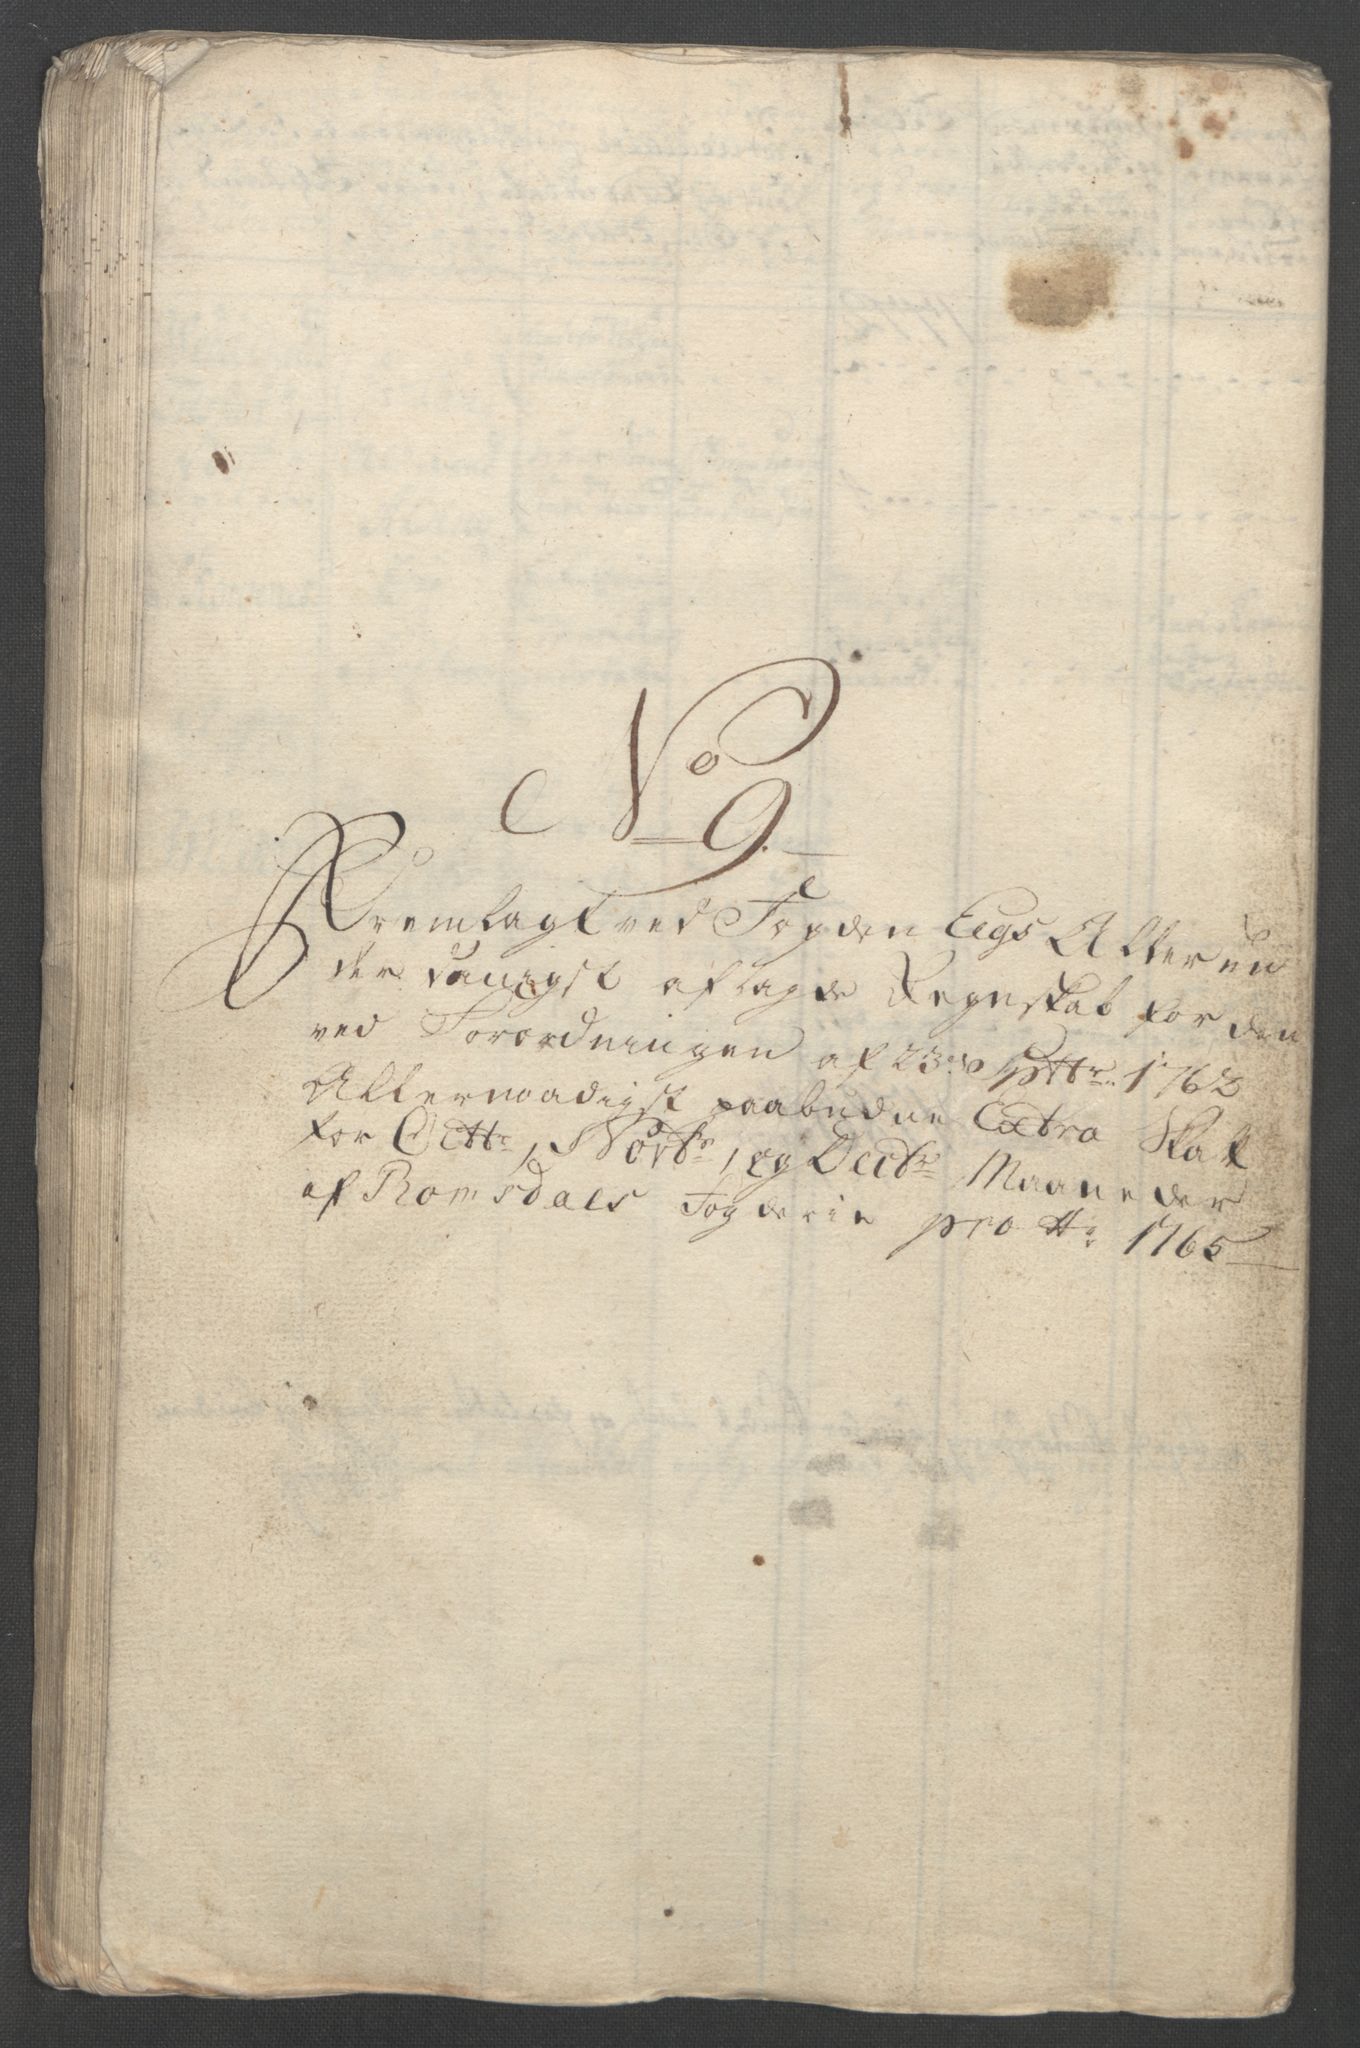 No 9.
Fremlagt ved Fogden Eegs Allerun
der danigst aflagde Regnskab for den
ved Forordningen af 23de Sptbr. 1762
Allernaadigst paabudne Extra Skat
for Octbr, Novbr, og Decbr Maaneder
af Romsdals Fogderie pro Ao 1765